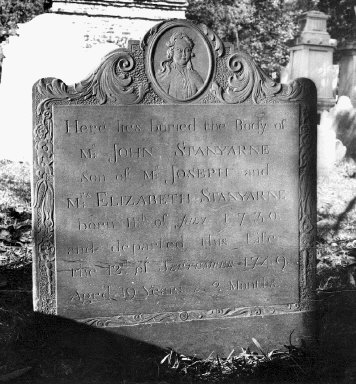 Here lies buried the Body of
Mr. JOHN STANYARNE
son of Mr JOSEPH and
Mrs. ELIZABETH STANYARNE
born 11th of July 1730
and departed this Life
The 12th of 1749
Aged 19 Years & 3 Months